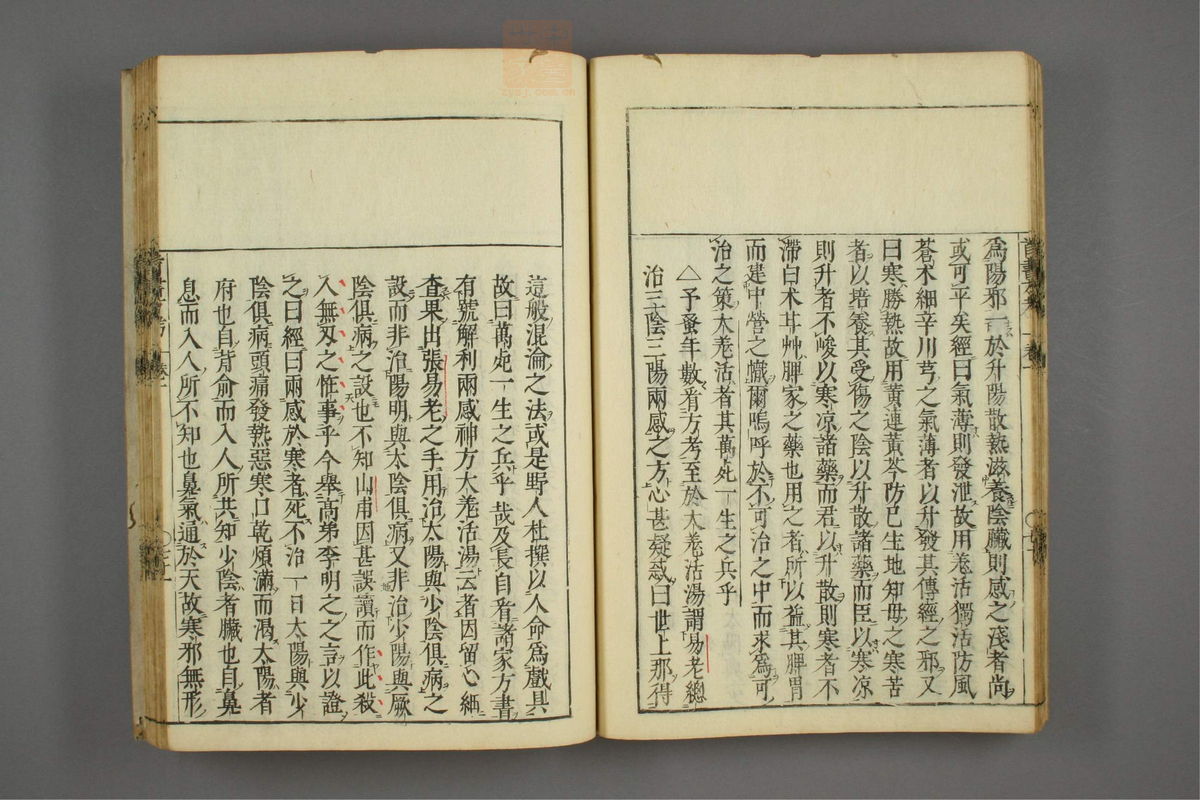 為陽邪一於升陽散熱滋養陰臟則感之淺者尚
或可平矣經曰氣薄則發泄故用羗活獨活防風
蒼朮細辛川芎之氣薄者以升發其傳經之邪又
曰寒勝熱故用黃連黃芩防巳生地知母之寒苦
者以培養其受傷之陰以升散諸藥而臣以寒凉
則升者不峻以寒凉諸藥而君以升散則寒者不
滯白朮甘艸脾家之藥也用之者所以益其脾胃
而建中營之幟爾嗚呼於不可治之中而求為可
治之策大羗活者其萬死一生之兵乎
△予蚤年數看方考至於大羗活湯謂易老總
治三陰三陽兩感之方心甚疑惑曰世上那得
這般混淪之法或是野人杜撰以人命為戲具
故曰萬死一生之兵乎哉及長自看諸家方書
有號解利兩感神方大羗活湯云者因留心細
查果出張易老之手用治太陽與少陰俱病之
設而非治陽明與太陰俱病又非治少陽與厥
陰俱病之設也不知山甫因甚誤讀而作此殺
人無刄之怪事乎今舉高弟李明之之言以證
之曰經曰兩感於寒者死不治一日太陽與少
陰俱病頭痛發熱惡寒口乾煩滿而渴太陽者
府也自背俞而入人所共知少陰者臟也自鼻
息而入人所不知也鼻氣通於天故寒邪無形